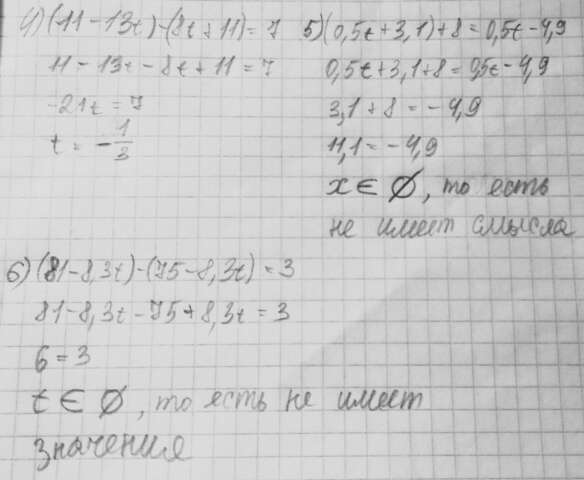 4) (11 - 13t) - (8t + 11) = 7
11 - 13t - 8t + 11 = 7
-21t = 7
t = -1/3
5) (0,5t + 3,1) + 8 = 0,5t - 4,9
0,5t + 3,1 + 8 = 0,5t - 4,9
3,1 + 8 = -4,9
11,1 = -4,9
x ∈ ∅, то есть
не имеет смысла
6) (81 - 8,3t) - (75 - 8,3t) = 3
81 - 8,3t - 75 + 8,3t = 3
6 = 3
t ∈ ∅, то есть не имеет
значения